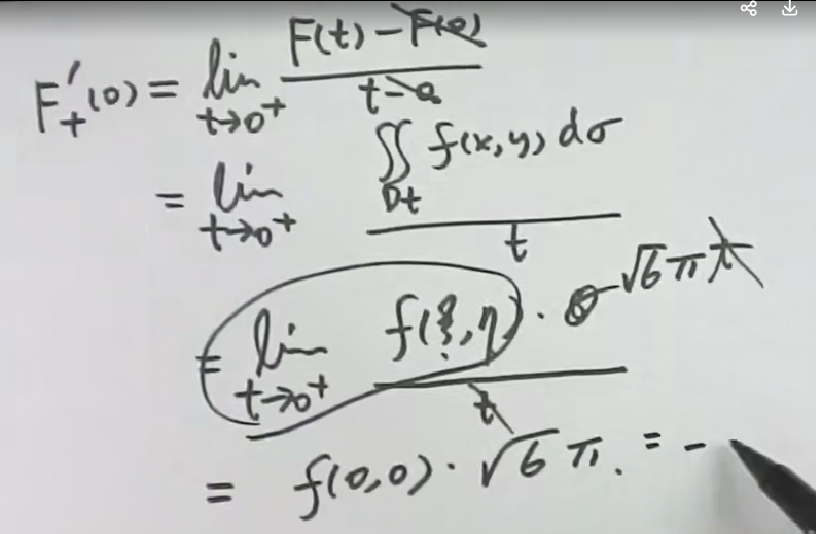 F₊′(0) = lim_{t→0⁺} (F(t) − F(0)) / (t − 0)
= lim_{t→0⁺} ∬_{Dt} f(x,y) dσ / t
= lim_{t→0⁺} f(ξ,η) · σ √6 π t / t
= f(0,0) · √6 π. = -